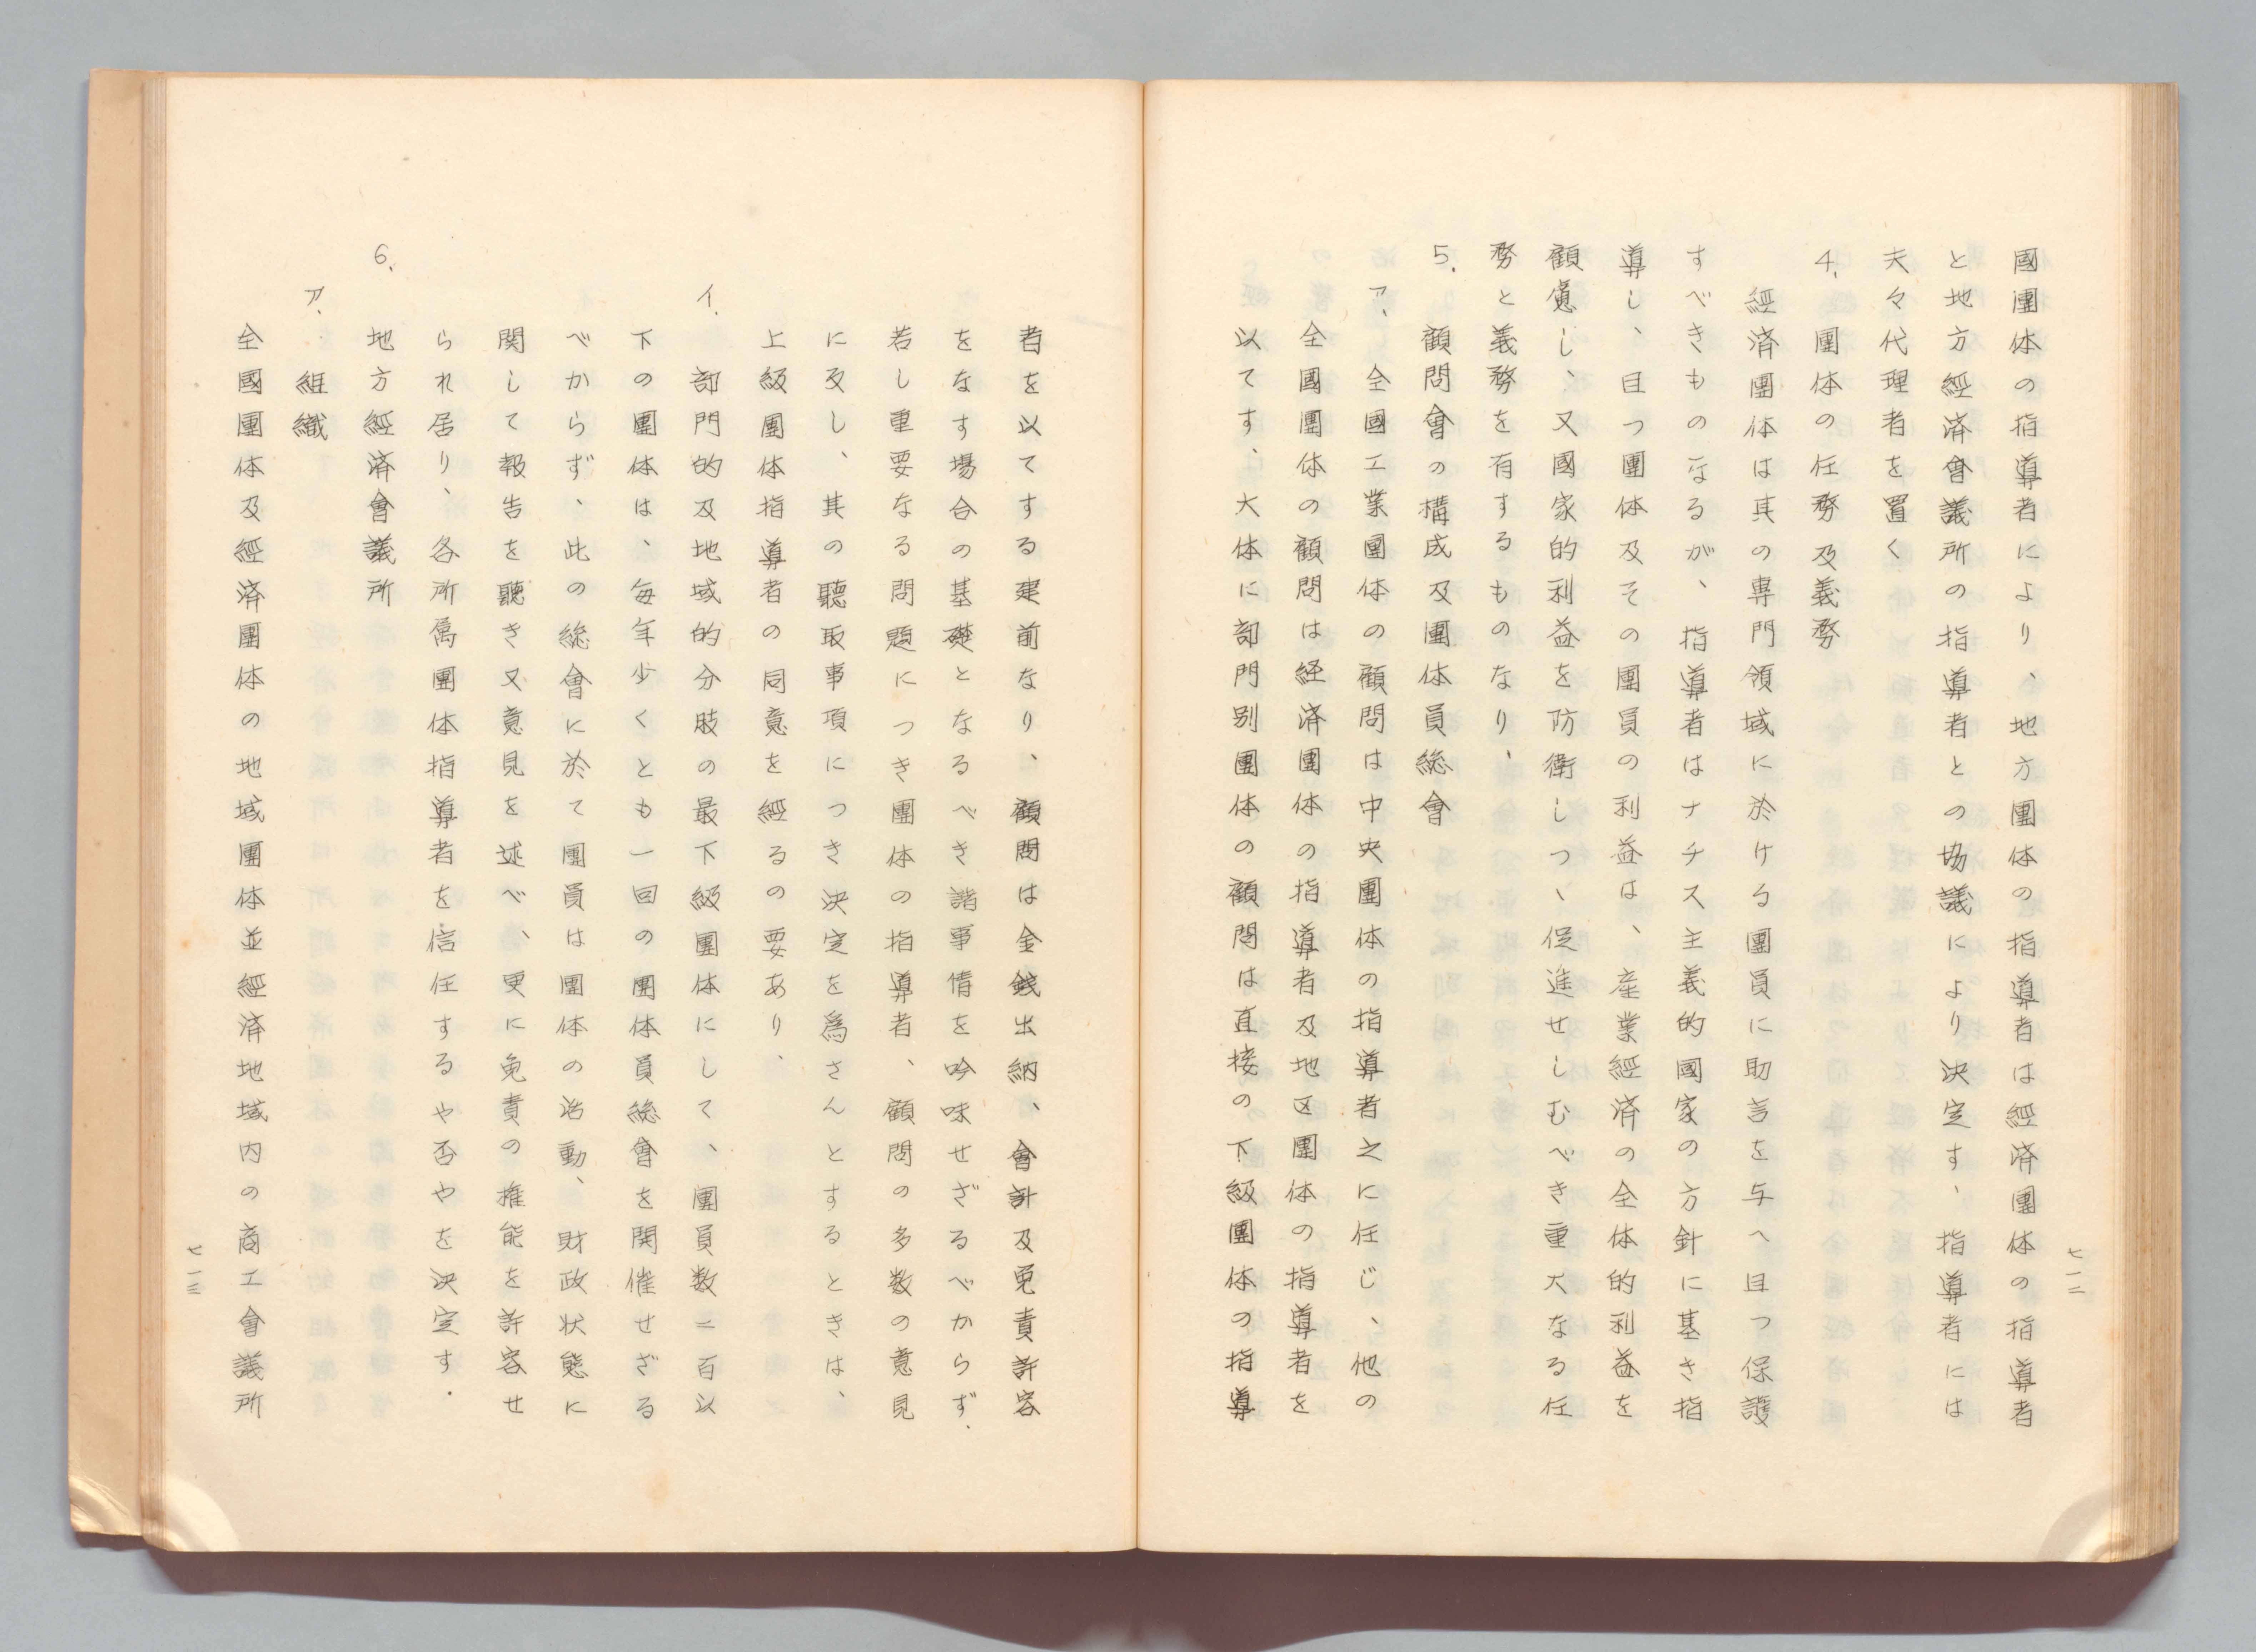 國團体の指導者により、地方團体の指導者は經済團体の指導者
と地方經済會議所の指導者との協議により決定す、指導者には
夫々代理者を置く
4、團体の任務及義務
經済團体は其の專門領域に於ける團員に助言を与へ且つ保護
すべきものなるが、指導者はナチス主義的國家の方針に基き指
導し、且つ團体及その團員の利益は、産業經済の全体的利益を
顧慮し、又國家的利益を防衛しつヽ促進せしむべき重大なる任
務と義務を有するものなり、
5、顧問會の構成及團体員総會
ア、全國工業團体の顧問は中央團体の指導者之に任じ、他の
全國團体の顧問は経済團体の指導者及地区團体の指導者を
以てす、大体に部門別團体の顧問は直接の下級團体の指導
七一二
者を以てする建前なり、顧問は金錢出納、會計及免責許容
をなす場合の基礎となるべき諸事情を吟味せざるべからず、
若し重要なる問題につき團体の指導者、顧問の多数の意見
に反し、其の聽取事項につき決定を爲さんとするときは、
上級團体指導者の同意を經るの要あり、
イ、部門的及地域的分肢の最下級團体にして、團員数二百以
下の團体は、毎年少くとも一回の團体員総會を開催せざる
べからず、此の総會に於て團員は團体の活動、財政状態に
関して報告を聽き又意見を述べ、更に免責の推能を許容せ
られ居り、各所属團体指導者を信任するや否やを決定す.
6、地方經済會議所
ア、組織
全國團体及經済團体の地域團体並經済地域内の商工會議所
七一三